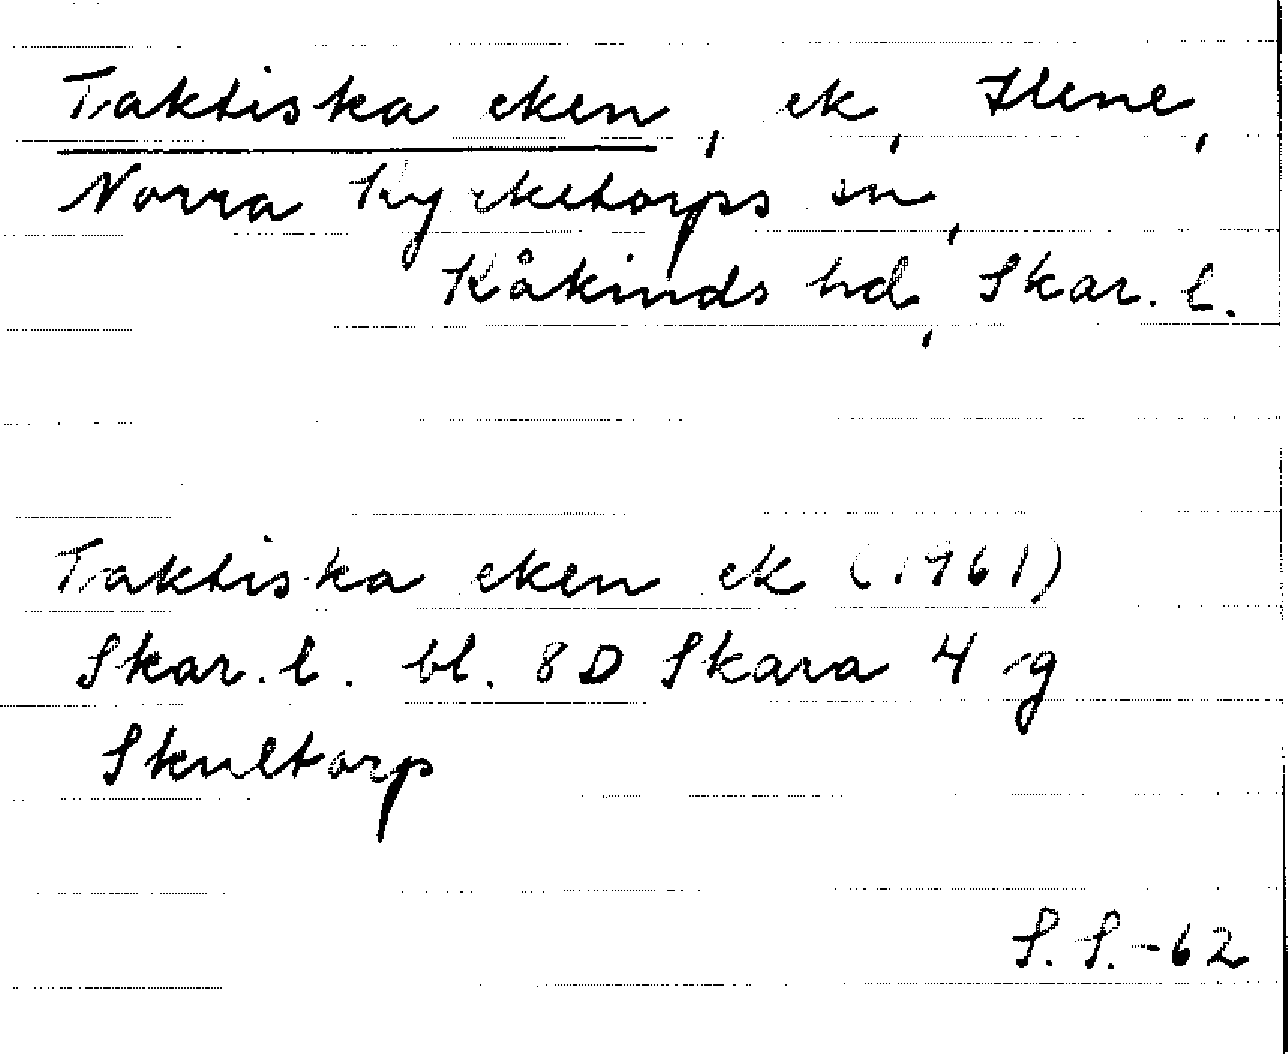 Taktiska eken, ek, Ilene,
Norra Kyrketorps sn,
Kåkinds hd, Skar. l.
Taktiska eken ek (1961)
Skar. l. bl. 8D Skara 4 g
Skultorp
S. S.-62